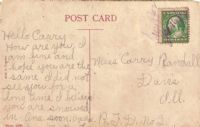 POST CARD
Hello Carry
How are you, I
am fine and
hope you are the
same. I did not
see you for a
long time I being
you are snowed
in Ans soon
Miss Carrey Randall
Davis
Ill.
R.F.D. No 2.